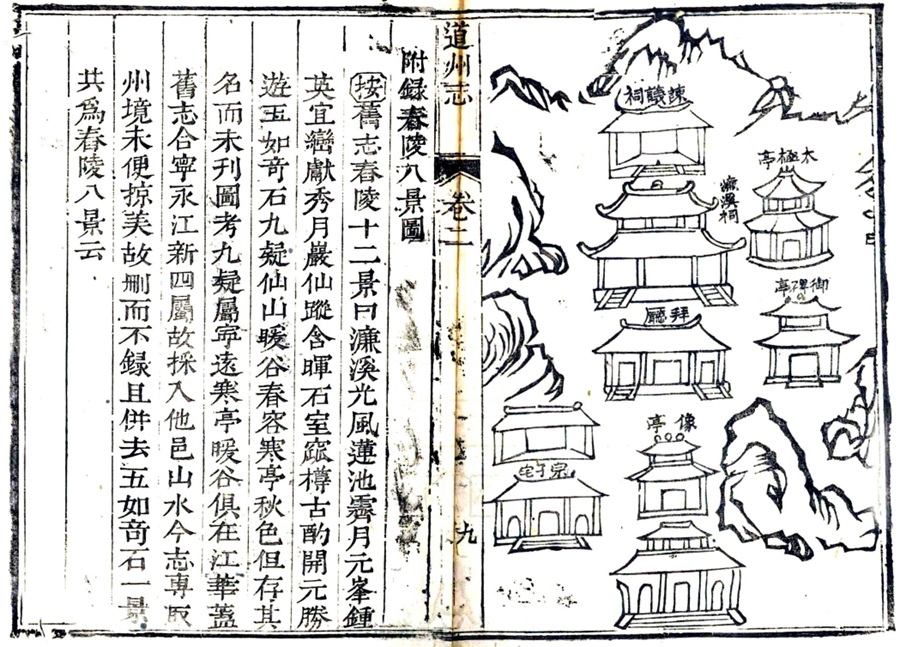 諫議祠
太極亭
濂溪祠
御碑亭
拜廳
像亭
道州志
卷二
九
附錄舂陵八景圖
按舊志舂陵十二景曰濂溪光風蓮池霽月元峯鍾
英宜巒獻秀月巖仙蹤含暉石室窊樽古酌開元勝
遊五如竒石九疑仙山暖谷春容寒亭秋色但存其
名而未刊圖考九疑屬寧遠寒亭暖谷俱在江華蓋
舊志合寧永江新四屬故採入他邑山水今志專取
州境未便掠美故刪而不錄且併去五如竒石一景
共爲舂陵八景云